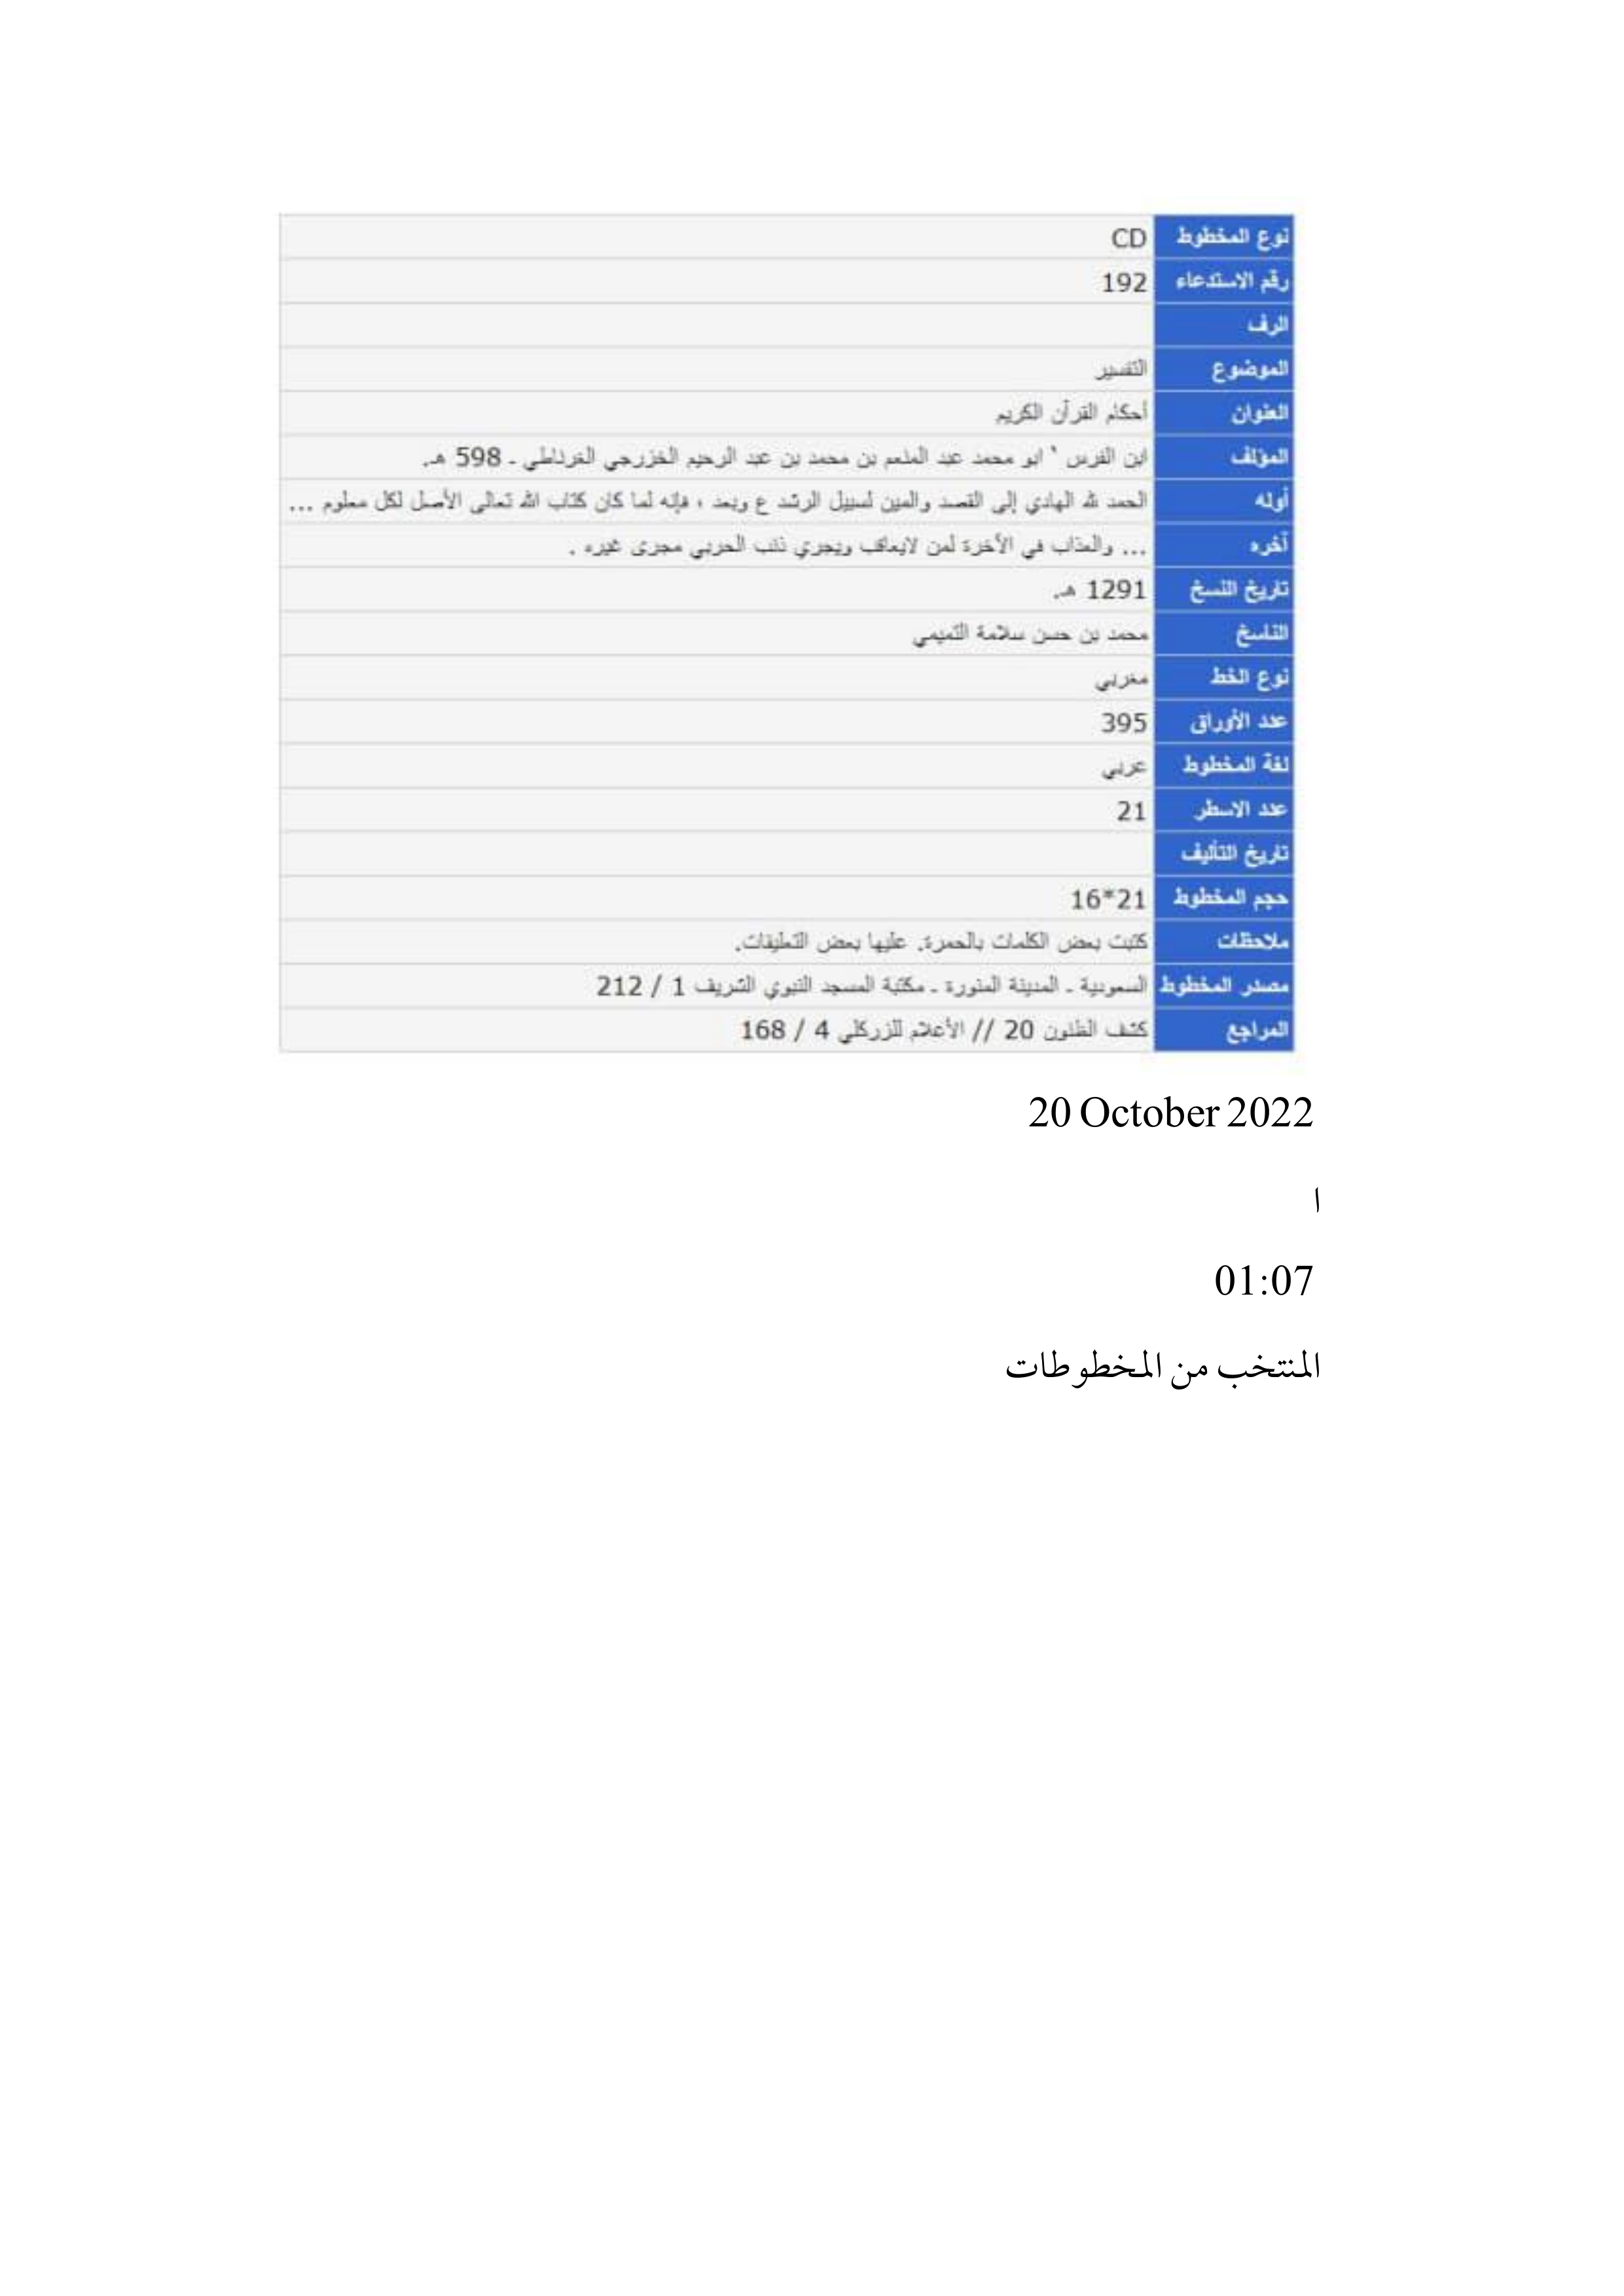 نوع المخطوط CD
رقم الاستدعاء 192
الرف
الموضوع التفسير
العنوان أحكام القرآن الكريم
المؤلف ابن الفرس ` ابو محمد عبد المنعم بن محمد بن عبد الرحيم الخزرجي الغرناطي ـ 598 هـ.
أوله الحمد لله الهادي إلى القصد والمبن لسبيل الرشد ع وبعد ، فإنه لما كان كتاب الله تعالى الأصل لكل معلوم ...
آخره ... والعذاب في الآخرة لمن لايعاقب ويجري ذنب الحربي مجرى غيره .
تاريخ النسخ 1291 هـ.
الناسخ محمد بن حسن سلامة التميمي
نوع الخط مغربي
عدد الأوراق 395
لغة المخطوط عربي
عدد الاسطر 21
تاريخ التأليف
حجم المخطوط 16*21
ملاحظات كتبت بعض الكلمات بالحمرة. عليها بعض التعليقات.
مصدر المخطوط السعودية ـ المدينة المنورة ـ مكتبة المسجد النبوي الشريف 1 / 212
المراجع كشف الظنون 20 // الأعلام للزركلي 4 / 168
20 October 2022
ا
01:07
المنتخب من المخطوطات